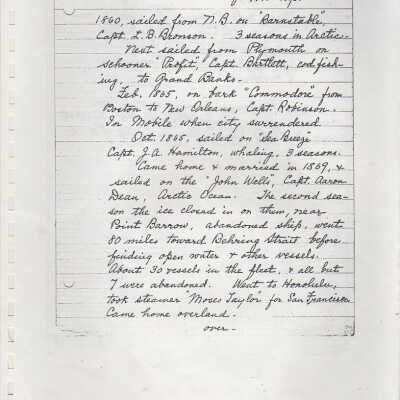 1860, sailed from N.B. on "Barnstable",
Capt. L. B. Bronson. 3 seasons in Arctic.
Next sailed from Plymouth on
schooner "Profit", Capt. Bartlett, codfish-
ing, to Grand Banks.
Feb. 1865, on bark "Commodore" from
Boston to New Orleans, Capt. Robinson.
In Mobile when city surrendered.
Oct. 1865, sailed on "Sea Breeze"
Capt. J. A. Hamilton, whaling, 3 seasons.
Came home & married in 1869, &
sailed on the "John Wells", Capt. Aaron
Dean, Arctic Ocean. The second sea-
son the ice closed in on them, near
Point Barrow, abandoned ship, went
80 miles toward Behring Strait before
finding open water & other vessels.
About 30 vessels in the fleet, & all but
7 were abandoned. Went to Honolulu,
took steamer "Moses Taylor" for San Francisco
Came home overland.
over-